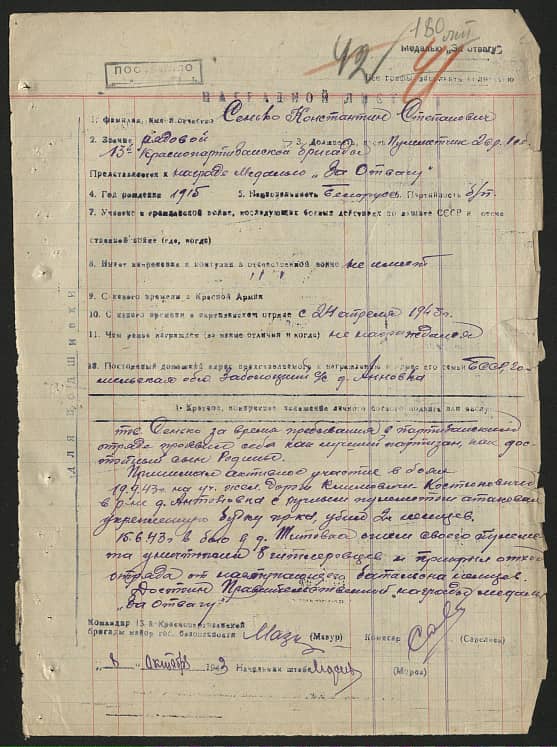 180
42
41
Медалью „За отвагу"
ПОСТУПИЛО
НАГРАДНОЙ ЛИСТ
1. Фамилия, имя и отчество Сенько Константин Степанович
2. Звание рядовой 3. Должность, часть Пулеметчик
13й Краснопартизанской бригады
Представляется к награде Медалью „За Отвагу"
4. Год рождения 1915 5. Национальность Белорус 6. Партийность б/п
7. Участие в гражданской войне, последующих боевых действиях по защите СССР и отече-
ственной войне (где, когда)
8. Имеет ли ранения и контузии в отечественной войне не имеет
9. С какого времени в Красной Армии
10. С какого времени в партизанском отряде с 24 апреля 1943г.
11. Чем ранее награжден (за какие отличия и когда) не награждался
12. Постоянный домашний адрес представляемого к награждению и адрес его семьи БССР, Го-
мельская обл д. Анновка
ДЛЯ ПОДШИВКИ
1. Краткое, конкретное изложение личного боевого подвига или заслуг
тов. Сенько за время пребывания в партизанском
отряде проявил себя как лучший партизан, как дос-
тойный сын Родины.
Принимал активное участие в боях
на уч. жел. дороги
в р-не д. Антоновка с ручным пулеметом атаковал
укрепленную будку врага, убил 2х немцев.
15.6.43г. в бою у д. Титовка огнем своего пулеме-
та уничтожил 8 гитлеровцев и прикрыл отход
отряда от наступающего батальона немцев.
Достоин Правительственной награды медали
„За Отвагу"
Командир 13 й Краснопартизанской
бригады майор гос. безопасности (Мазур) Комиссар (Савельев)
„8" октября 1943 Начальник штаба
(Мороз)